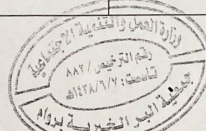 وزارة العمل والتنمية الاجتماعية
رقم الترخيص / ٨٨٢
تأسست: ١٤٢٨/٦/٧هـ
جمعية البر الخيرية بروام